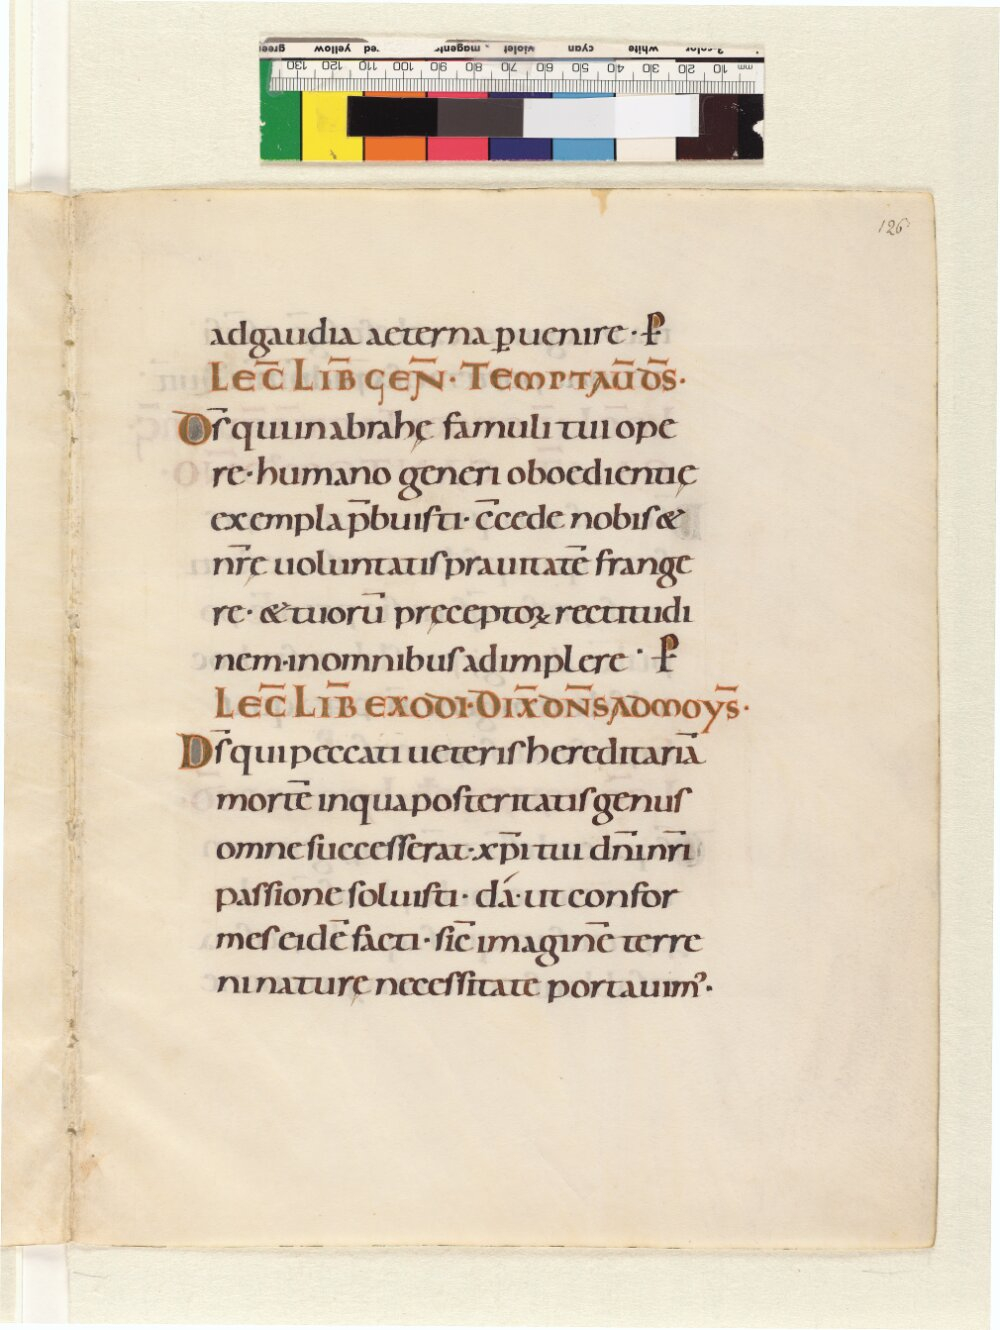 126
ad gaudia aeterna ꝑuenire · P̵
LEC̄ LIB̄ GEN̄ · TEMPTAŪ D̄S ·
D̄s qui in abrahę famuli tui ope
re · humano generi oboedientię
exempla p̄buisti · c̄cede nobis &
nr̄ę uoluntatis prauitatē frange
re · & tuorū pręceptoꝝ rectitudi
nem · in omnibus adimplere · P̵
LEC̄ LIB̄ EXODI · DIX̄ DN̄S AD MOYS̄ ·
D̄s qui peccati ueteris hereditariā
mortē in qua posteritatis genus
omne successerat · xp̄i tui dn̄i nr̄i
passione soluisti · dá · ut confor
mes eidē facti · sic̄ imaginē terre
ni naturę necessitate portauim᾽ ·